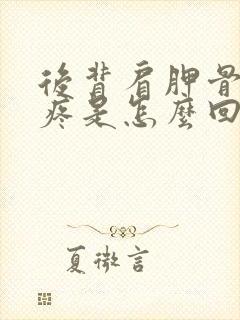 後背肩胛骨
疼是怎麼回
夏微言